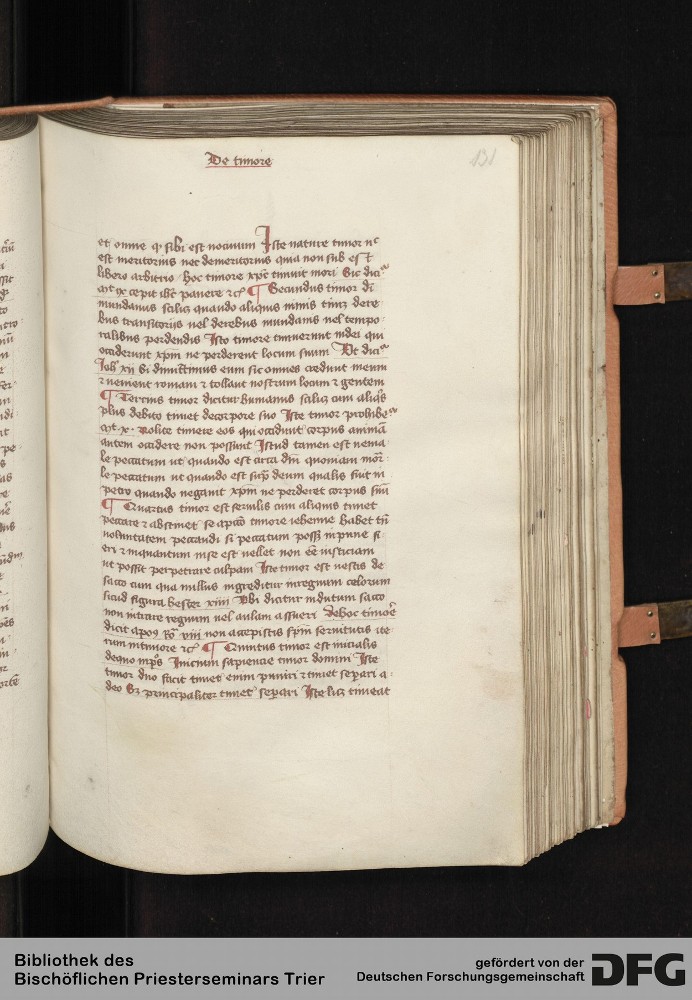 De timore
131
et omne q sibi est nocivum Iste nature timor nc
est meritorius nec demeritorius quia non sub est
libero arbitrio hoc timore xps timuit mori Sic dicr
cepit ibi pavere rc ¶ Secundus timor dr
mundanus scilz quando aliquis nimis timz dere
bus transitoriis vel derebus mundanis vel tempo
ralibus perdendis Isto timore timuerunt iudei qui
occiderunt xpm ne perderent locum suum Ut dicr
Joh xii Si dimittimus eum sic omnes credunt in eum
r venient romani r tollant nostrum locum r gentem
¶ Tercius timor dicitur humanus scilz cum aliqs
plus debito timet decorpore suo Iste timor prohibetr
x Nolite timere eos qui occidunt corpus animam
autem occidere non possunt Istud tamen est venia
le peccatum ut quando est circa quoniam mor
le peccatum ut quando est supra deum qualis fuit in
petro quando negavit xpm ne perderet corpus suu
¶ Quartus timor est servilis cum aliquis timet
peccare r abstinet se a timore iehenne habet tn
voluntatem peccandi si peccatum posset inpune fi
eri r inquantum in se est vellet non esse iusticiam
ut possit perpetrare culpam Iste timor est vestis de
sacco cum qua nullus ingreditur inregnum celorum
sicud figura hester xiiii Ubi dicitur indutum sacco
non intrare regnum vel aulam assueri dehoc timore
dicit apos Ro viii non accepistis spm servitutis ite
rum intimore rc ¶ Quintus timor est inicialis
dequo Inicium sapiencie timor domini Iste
timor duo facit timet enim puniri r timet separi a
deo Sz principaliter timet separi Iste licz timeat
Bibliothek des
Bischöflichen Priesterseminars Trier
gefördert von der
Deutschen Forschungsgemeinschaft
DFG